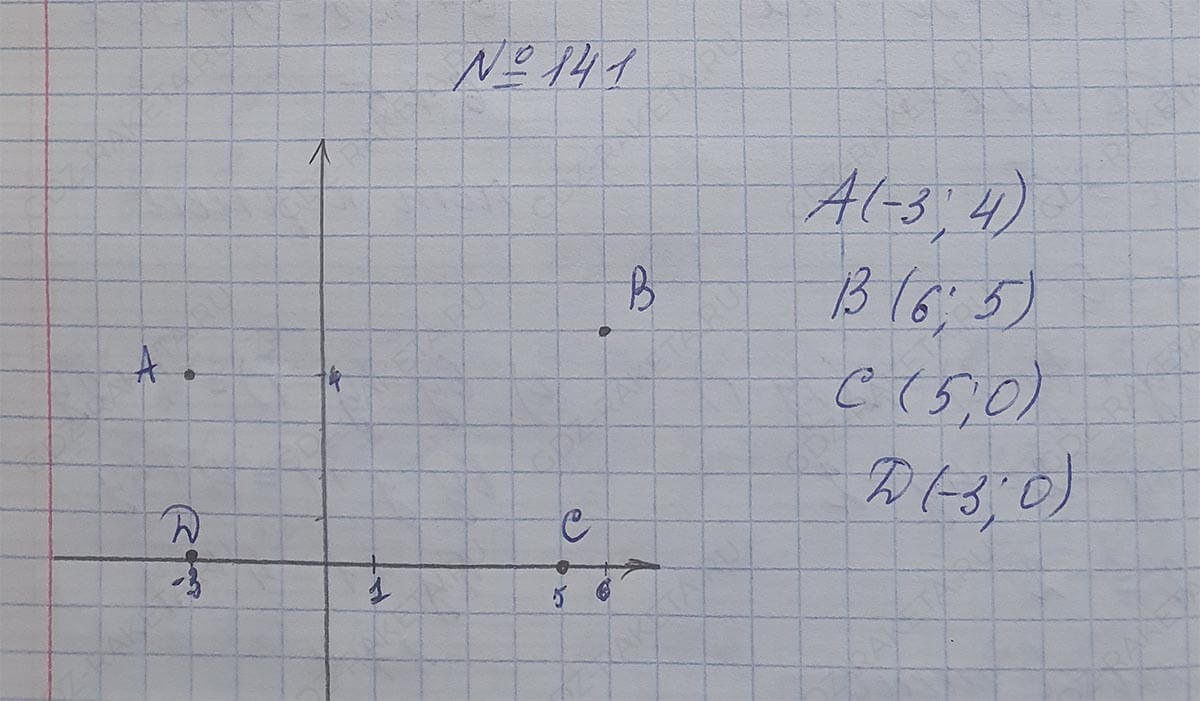 № 141
A(-3; 4)
B
B (6; 5)
A
4
C (5; 0)
D (-3; 0)
D
C
-3
1
5
6
GDZ-RAKETA.RU